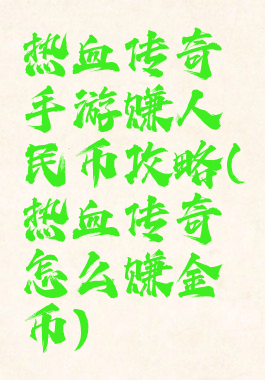 热血传奇
手游赚人
民币攻略(
热血传奇
怎么赚金
币)